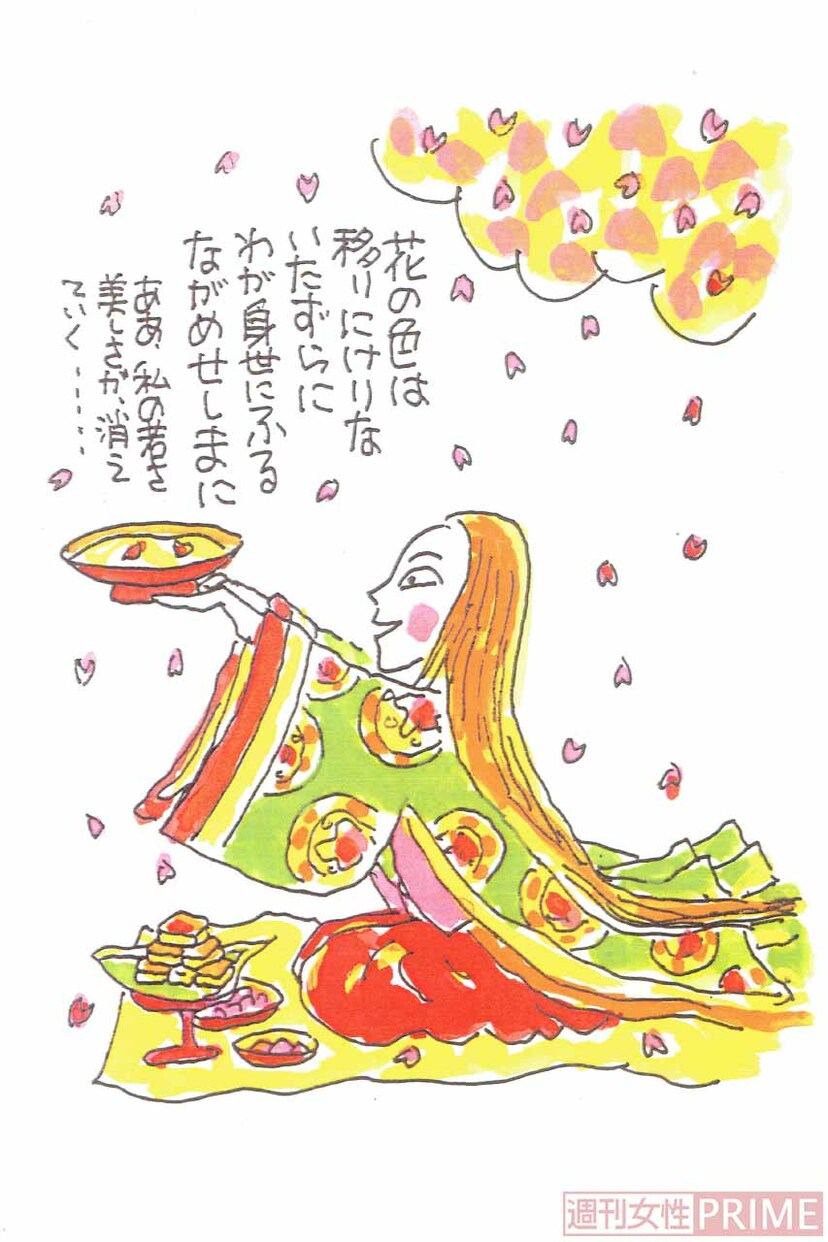 花の色は
移りにけりな
いたずらに
わが身世にふる
ながめせしまに
ああ、私の若さ
美しさが、消え
ていく……
週刊女性PRIME